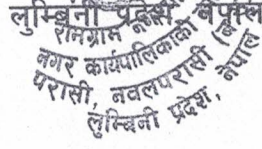 लुम्बिनी प्रदेश नेपाल
रामग्राम
नगर कार्यपालिकाको
परासी, नवलपरासी
लुम्बिनी प्रदेश, नेपाल